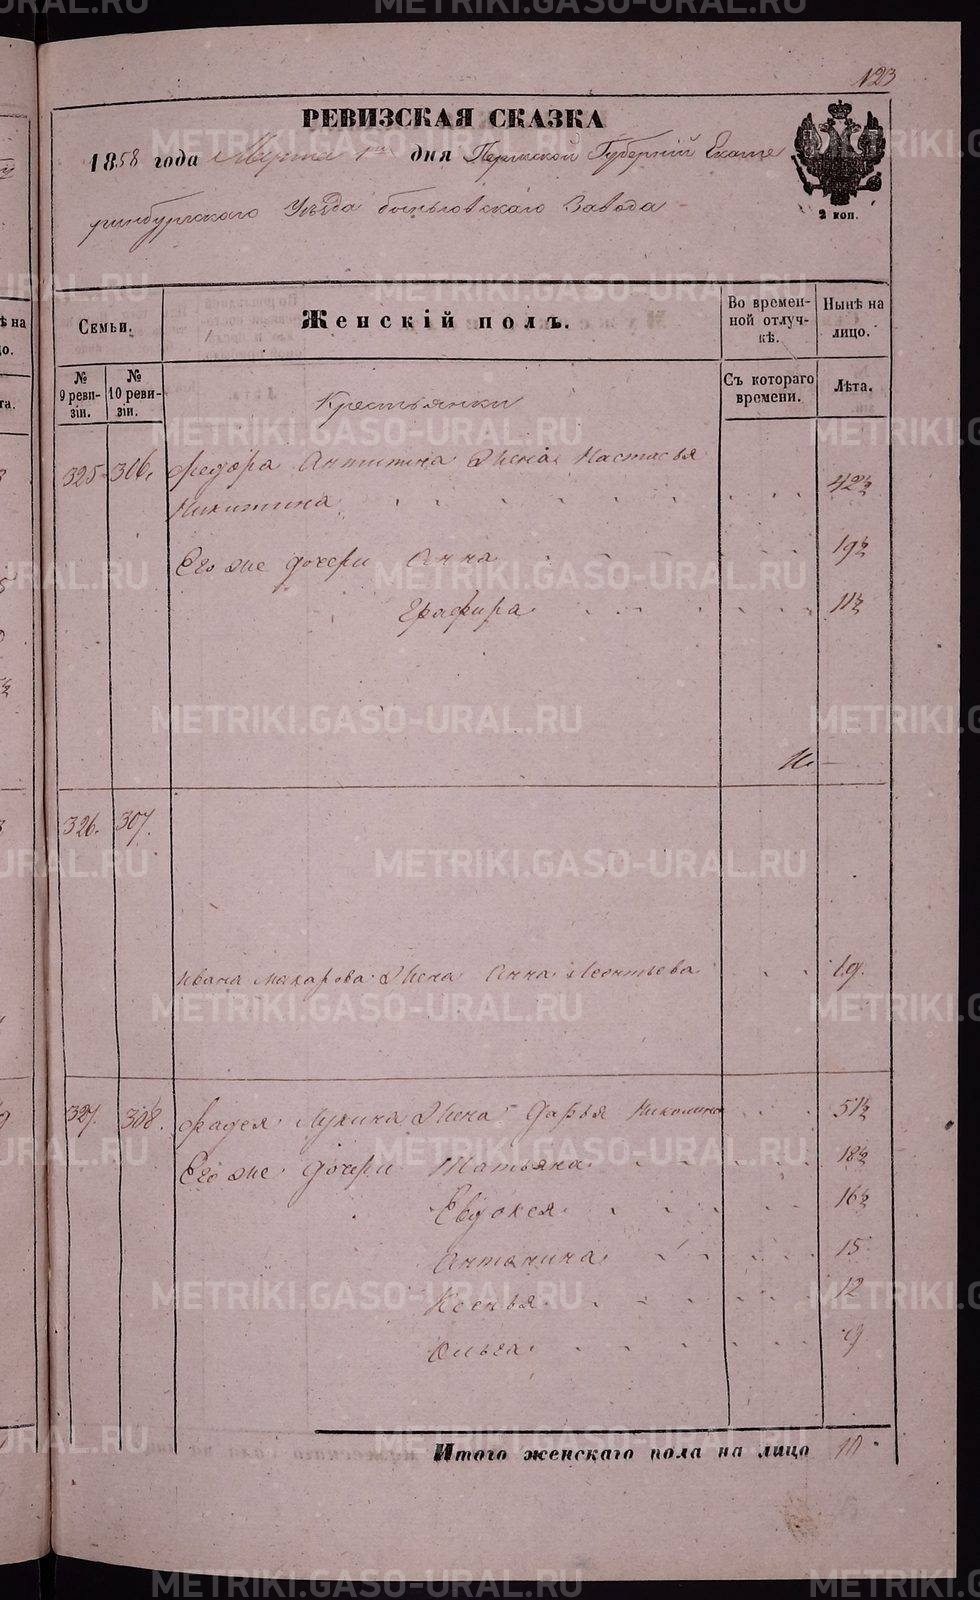 123
РЕВИЗСКАЯ СКАЗКА
1858 года Марта 1го дня Пермской Губерніи Екате
ринбургскаго Уѣзда Быньговскаго Завода
2 коп.
Семьи.
Женскій полъ.
Во времен-
ной отлуч-
кѣ.
Нынѣ на
лицо.
№
9 реви-
зіи.
№
10 реви-
зіи.
Съ котораго
времени.
Лѣта.
Крестьянки
325 306. Федора Антипина Жена Настасья
Никитина 42½
Его же дочери Анна 19½
Графира 11½
326. 307.
Ивана Макарова Жена Анна Леонтьева 19.
327. 308. Фадея Лукина Жена Дарья 51½
Его же дочери Татьяна 18½
Евдокея 16½
Антонина 15
Ксенья 12
Ольга 9
Итого женскаго пола на лицо 10.
METRIKI.GASO-URAL.RU